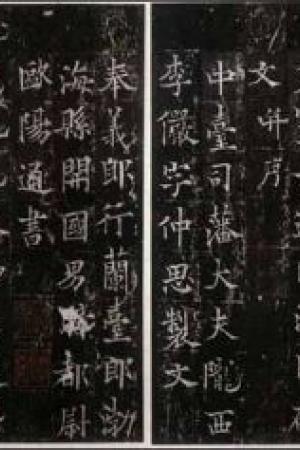 文并序
中臺司藩大夫隴西
李儼字仲思製文
奉義郎行蘭臺郎渤
海縣開國男騎都尉
歐陽通書